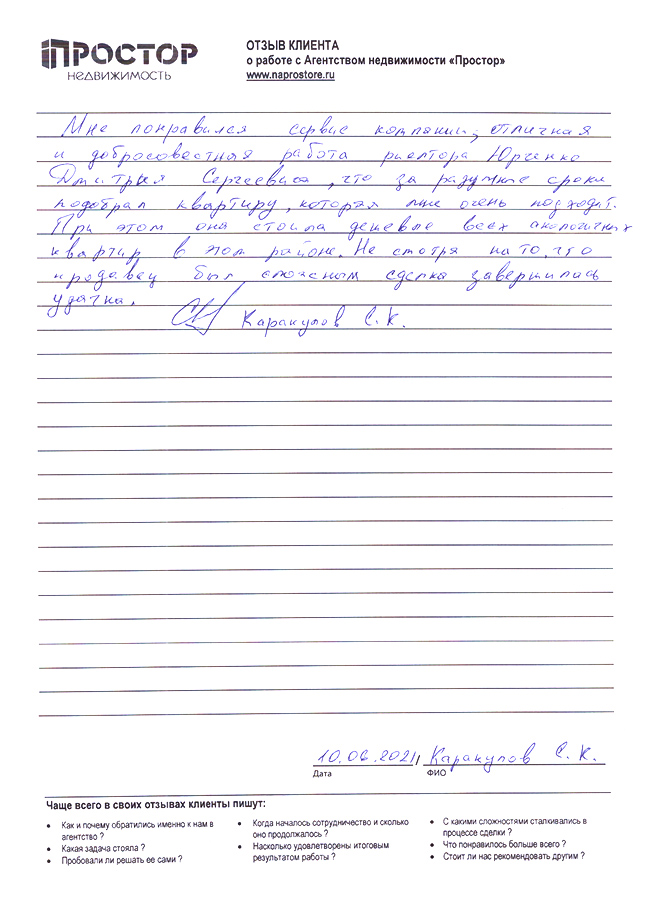 ПРОСТОР
НЕДВИЖИМОСТЬ
ОТЗЫВ КЛИЕНТА
о работе с Агентством недвижимости «Простор»
www.naprostore.ru
Мне понравился сервис компании, отличная
и добросовестная работа риелтора Юрченко
Дмитрия Сергеевича, что за разумные сроки
подобрал квартиру, которая мне очень подходит.
При этом она стоила дешевле всех аналогичных
квартир в этом районе. Не смотря на то, что
продавец был сложным сделка завершилась
удачно.
Каракулов С. К.
10.06.2021, Каракулов С. К.
Дата ФИО
Чаще всего в своих отзывах клиенты пишут:
• Как и почему обратились именно к нам в
агентство ?
• Какая задача стояла ?
• Пробовали ли решать ее сами ?
• Когда началось сотрудничество и сколько
оно продолжалось ?
• Насколько удовлетворены итоговым
результатом работы ?
• С какими сложностями сталкивались в
процессе сделки ?
• Что понравилось больше всего ?
• Стоит ли нас рекомендовать другим ?